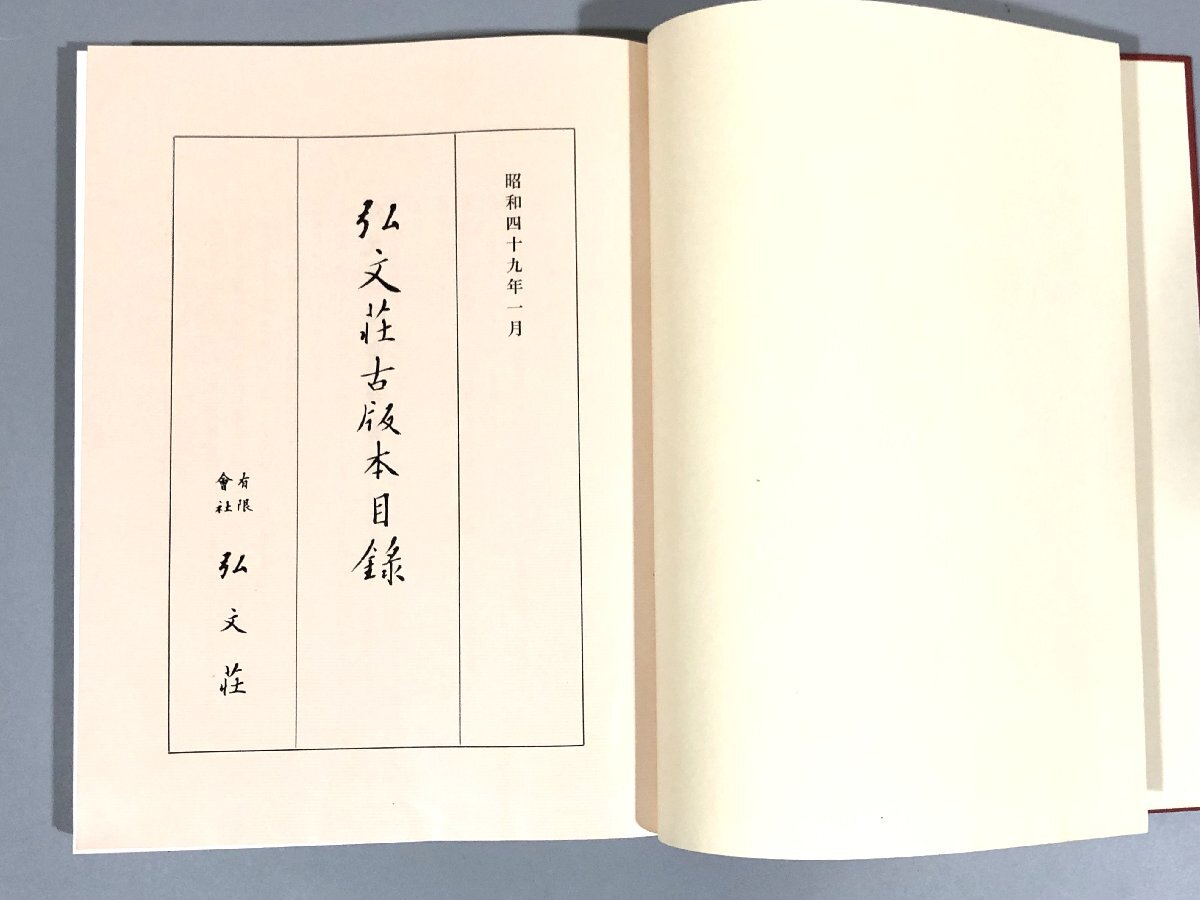 昭和四十九年一月
弘文荘古版本目錄
有限會社
弘文荘